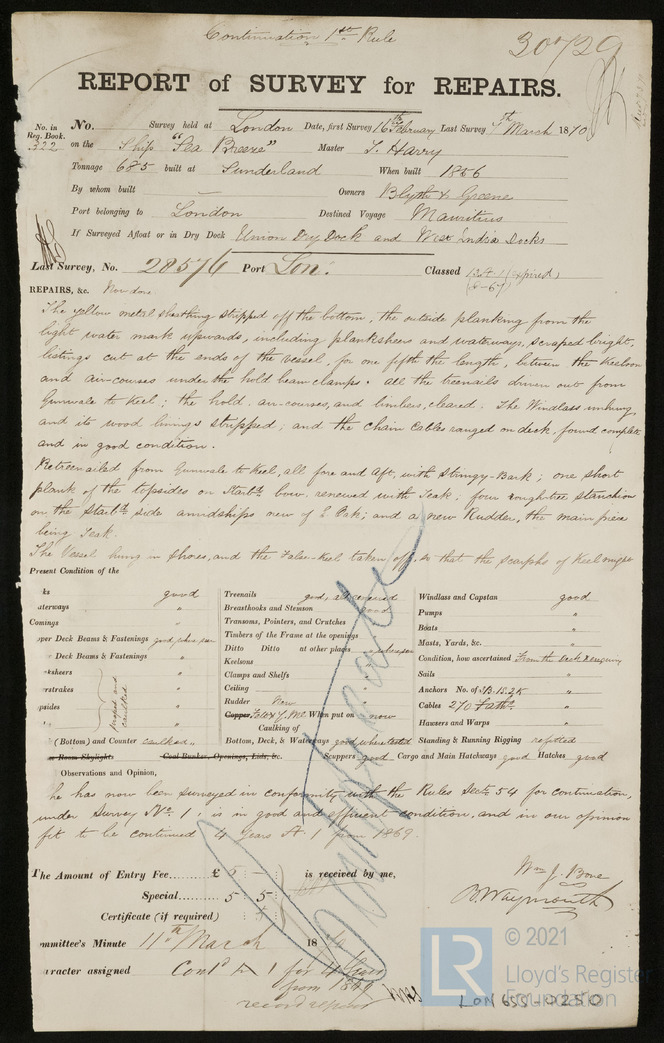 Continuation 1st Rule
30729
REPORT of SURVEY for REPAIRS.
No. in Reg. Book. 322
No. Survey held at London Date, first Survey 16th February Last Survey 7th March 1870
on the Ship "Sea Breeze" Master T. Harry
Tonnage 685 built at Sunderland When built 1856
By whom built — Owners Blyth & Greene
Port belonging to London Destined Voyage Mauritius
If Surveyed Afloat or in Dry Dock Union Dry Dock and West India Docks
Last Survey, No. 28576 Port Lon: Classed 13 A 1 (expired)
REPAIRS, &c. Now done
The yellow metal sheathing stripped off the bottom, the outside planking from the
light water mark upwards, including planksheers and waterways, scraped bright,
listings cut at the ends of the vessel, for one fifth the length, between the Keelson
and air-courses under the hold beam clamps. all the treenails driven out from
Gunwale to Keel; the hold, air-courses, and limbers, cleared. The Windlass unhung
and its wood linings stripped; and the Chain Cables ranged on deck, found complete
and in good condition.
Retreenailed from Gunwale to Keel, all fore and aft, with Stringy-Bark; one short
plank of the topsides on Starbd bow, renewed with Teak; four roughtree stanchions
on the Starbd side amidships new of E Oak; and a new Rudder, the main piece
being Teak.
The Vessel hung in Shoes, and the False-Keel taken off, so that the scarphs of Keel might
Present Condition of the
ks good
aterways "
Comings "
pper Deck Beams & Fastenings good, where seen
Deck Beams & Fastenings "
ksheers "
erstrakes "
psides "
scraped and caulked
(Bottom) and Counter caulked "
r Room Skylights Coal Bunker, Openings, Lids, &c.
Treenails good, all renewed
Breasthooks and Stemson good
Transoms, Pointers, and Crutches "
Timbers of the Frame at the openings "
Ditto Ditto at other places
Keelsons "
Clamps and Shelfs "
Ceiling "
Rudder New
Copper, Felt & Y.M. When put on now
Caulking of
Bottom, Deck, & Waterways good, when tested
Scuppers good
Windlass and Capstan good
Pumps "
Boats "
Masts, Yards, &c. "
Condition, how ascertained From the deck & enquiry
Sails "
Anchors No. of
Cables 270 Faths "
Hawsers and Warps "
Standing & Running Rigging refitted
Cargo and Main Hatchways good Hatches good
Observations and Opinion,
he has now been surveyed in conformity with the Rules Sectn 54 for continuation,
under Survey No. 1; is in good and efficient condition, and in our opinion
fit to be continued 4 years A. 1 from 1869.
The Amount of Entry Fee...... £ 5 : is received by me,
Special...... 5 5
Certificate (if required)
Wm J. Bone
B. Waymouth
ommittee's Minute 11th March 1870
aracter assigned Contd A 1 for 4 years
from 1869
record repairs
LON 655-0250
LR
© 2021
Lloyd's Register
Foundation